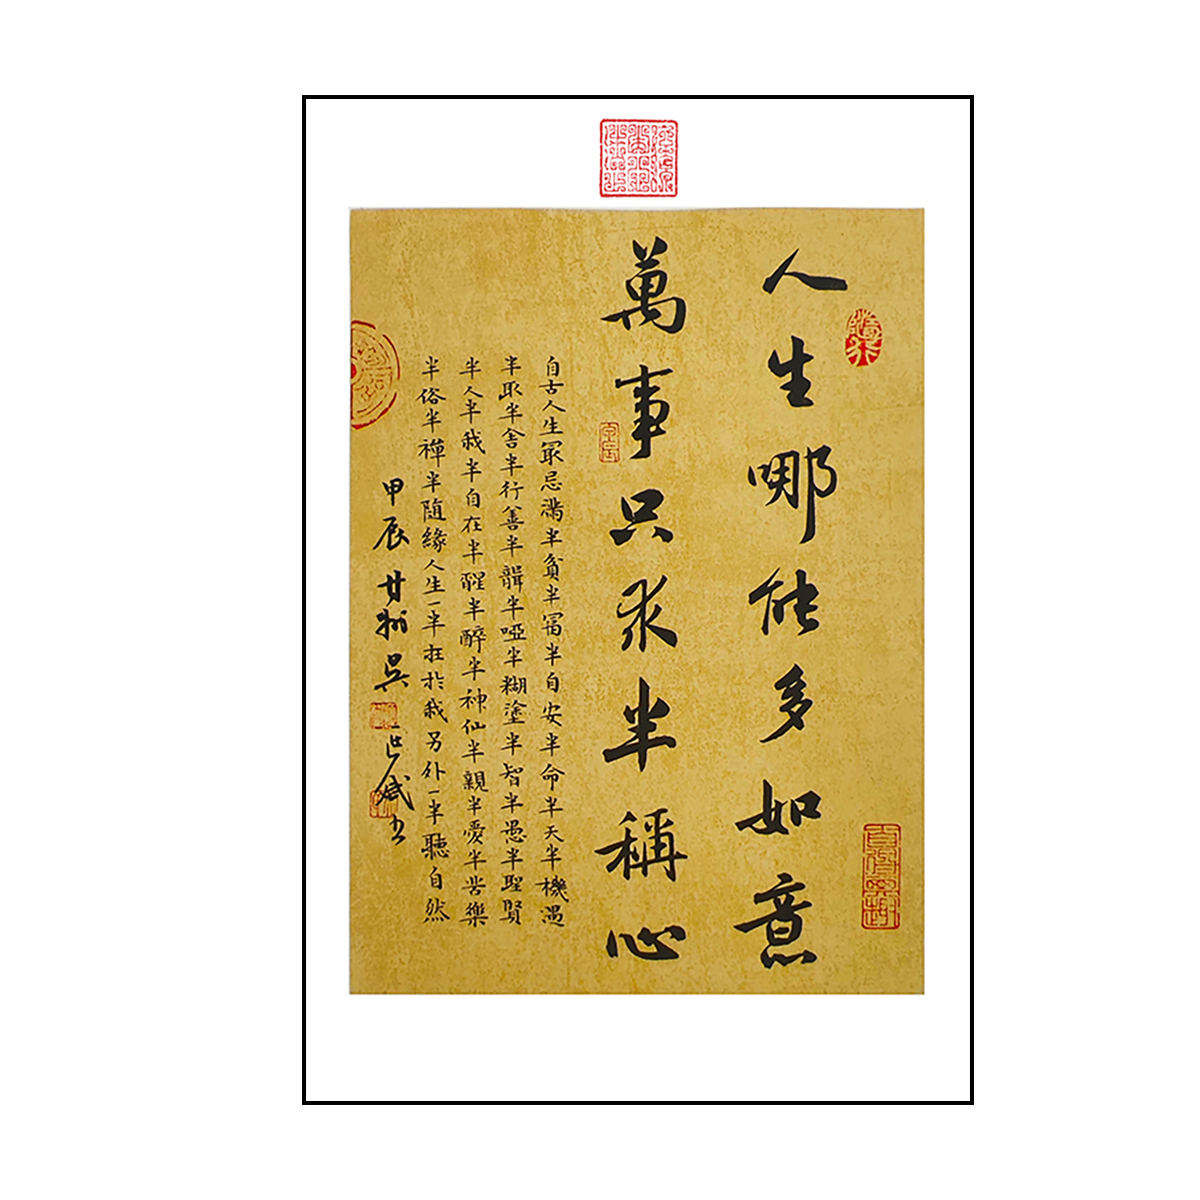 人生哪能多如意
萬事只求半稱心
自古人生最忌滿半貧半富半自安半命半天半機遇
半取半舍半行善半聾半啞半糊塗半智半愚半聖賢
半人半我半自在半醒半醉半神仙半親半愛半苦樂
半俗半禪半隨緣人生一半在於我另外一半聽自然
甲辰甘州吳